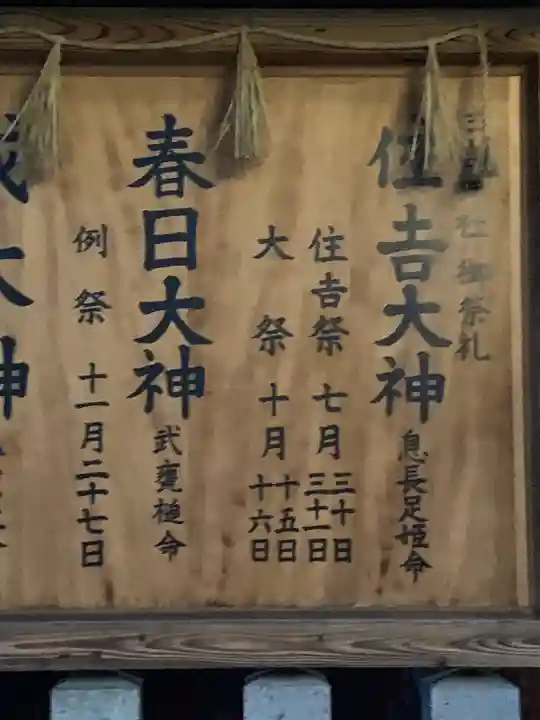 社 御祭礼
住吉大神 息長足姫命
住吉祭 七月 三十日
三十一日
大祭 十月 十五日
十六日
春日大神 武甕槌命
例祭 十一月二十七日
大神